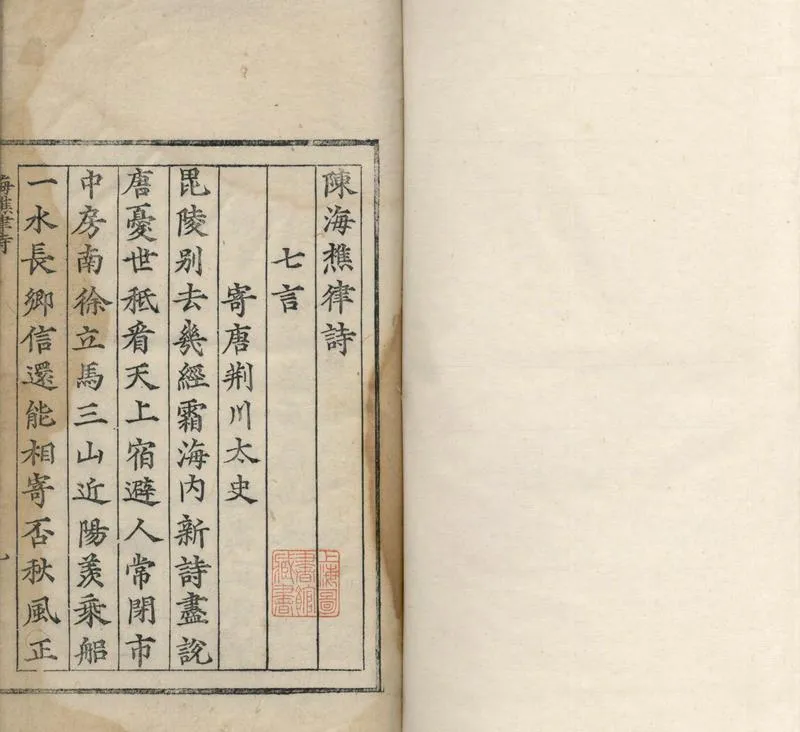 陳海樵律詩
七言
寄唐荆川太史
毘陵别去幾經霜海内新詩盡說
唐憂世秪看天上宿避人常閉市
中房南徐立馬三山近陽羨乗船
一水長鄉信還能相寄否秋風正
上海圖
書館
藏書